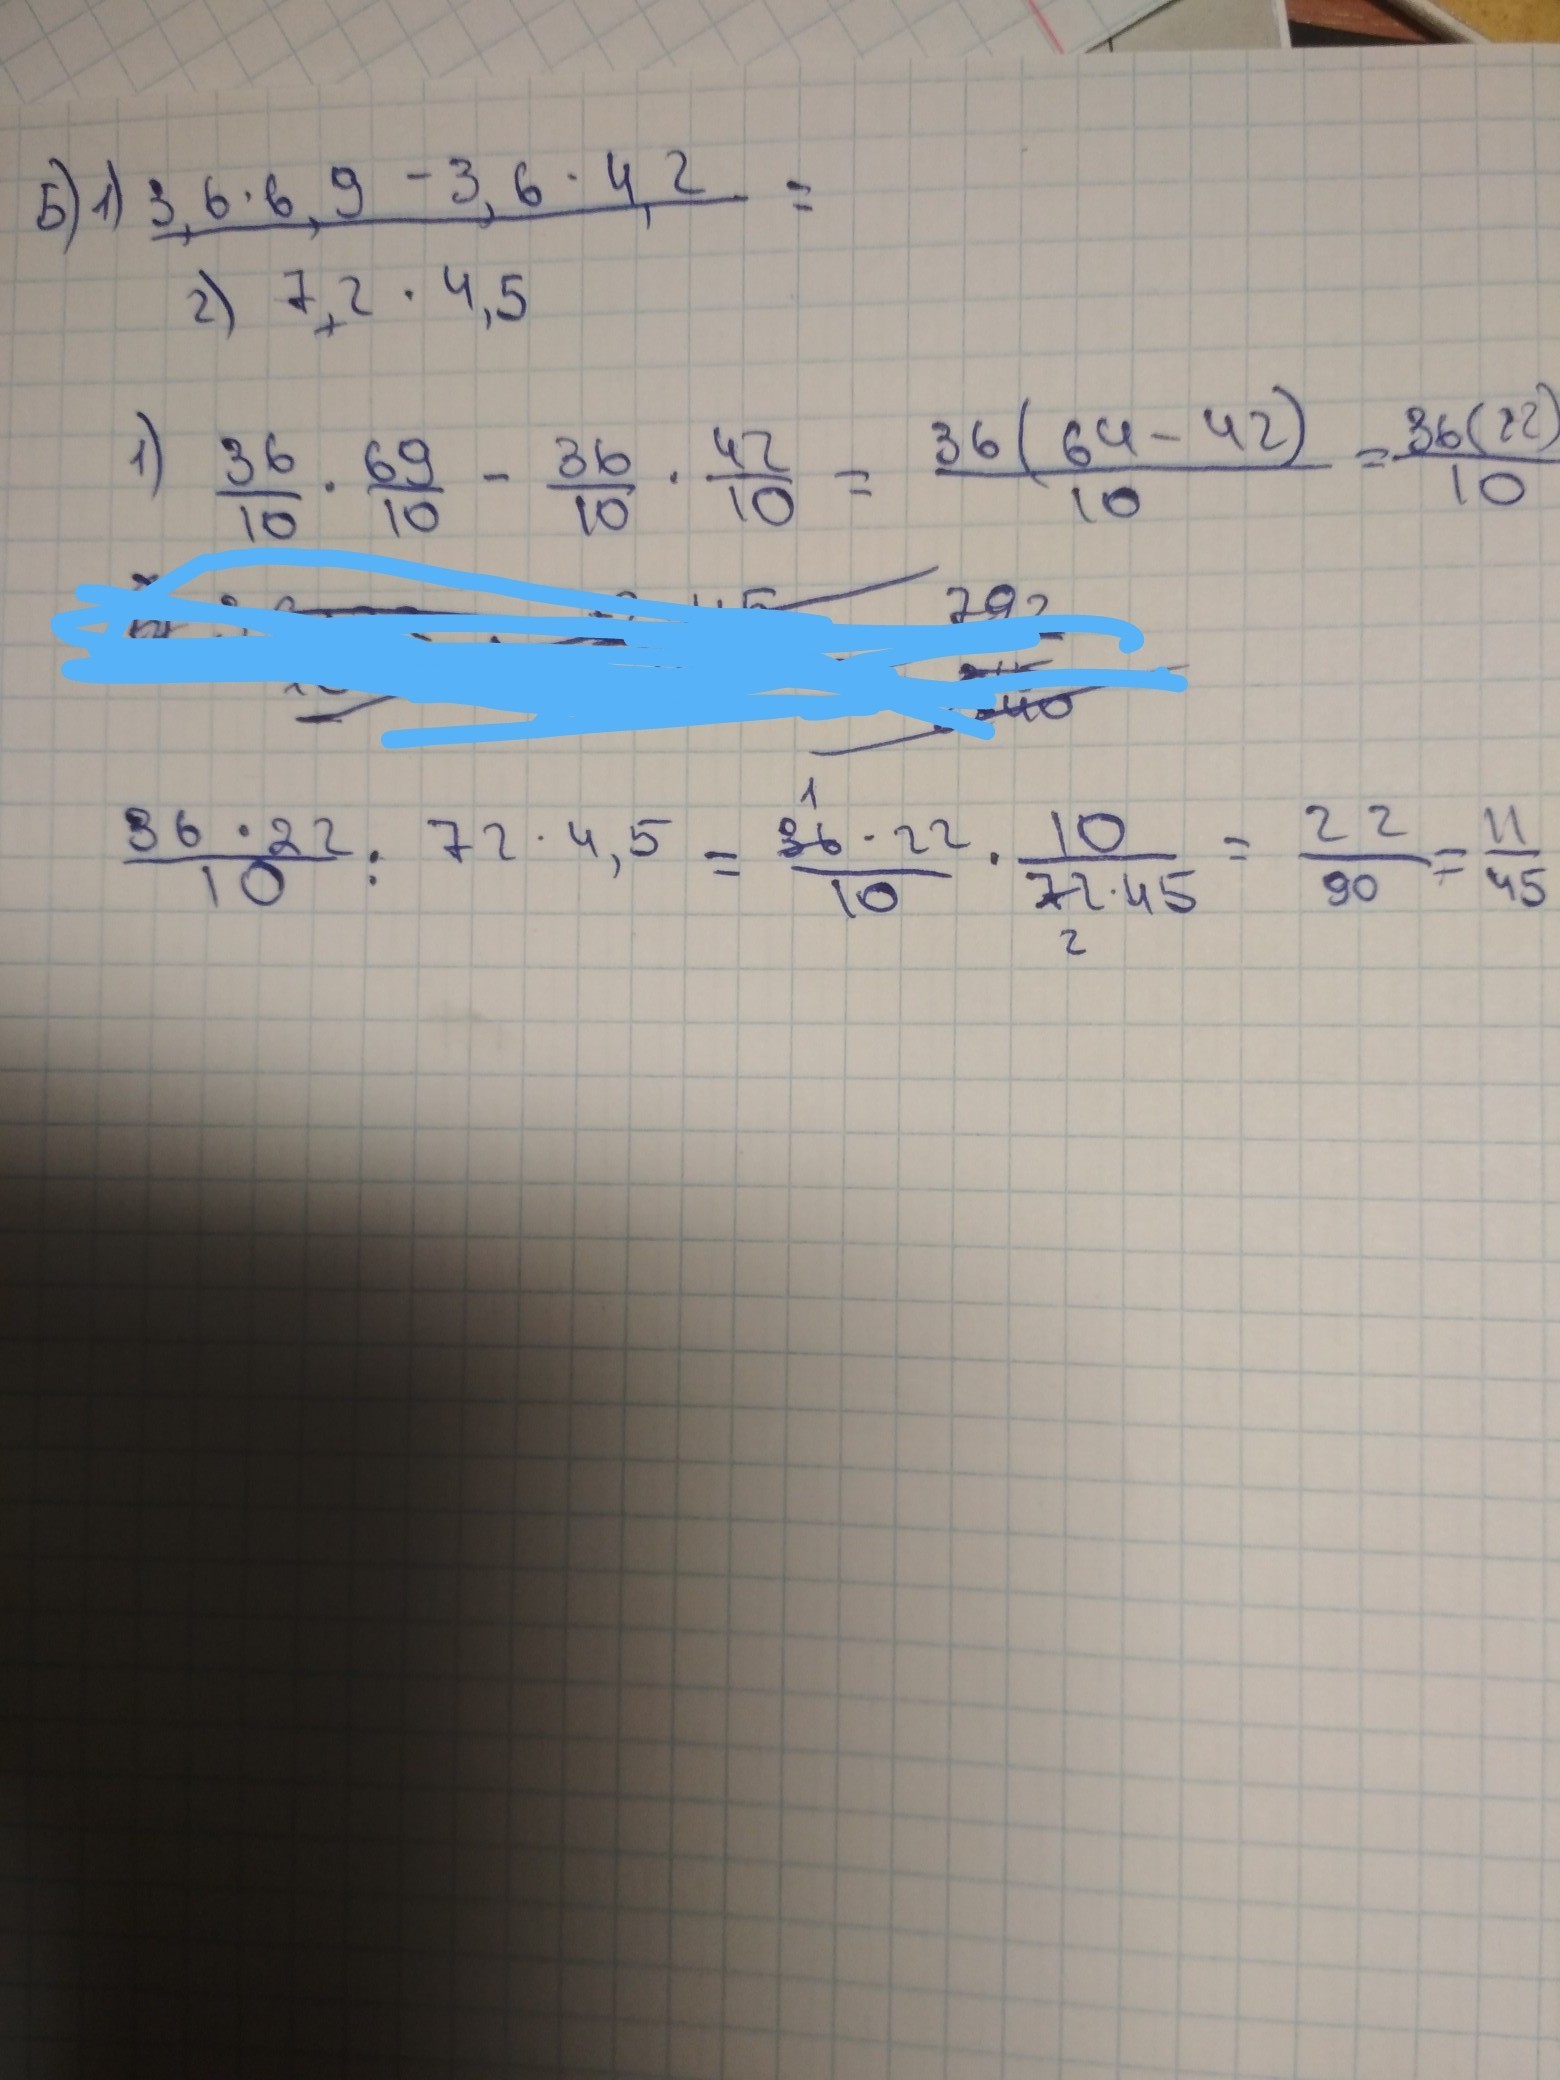 Б) 1) 3,6·6,9 - 3,6·4,2 =
2) 7,2 · 4,5
1) 36/10 · 69/10 - 36/10 · 42/10 = 36(64-42)/10 = 36(22)/10
45 792
40
36·22/10 : 72·4,5 = 36·22/10 · 10/72·45 = 22/90 = 11/45
1
2